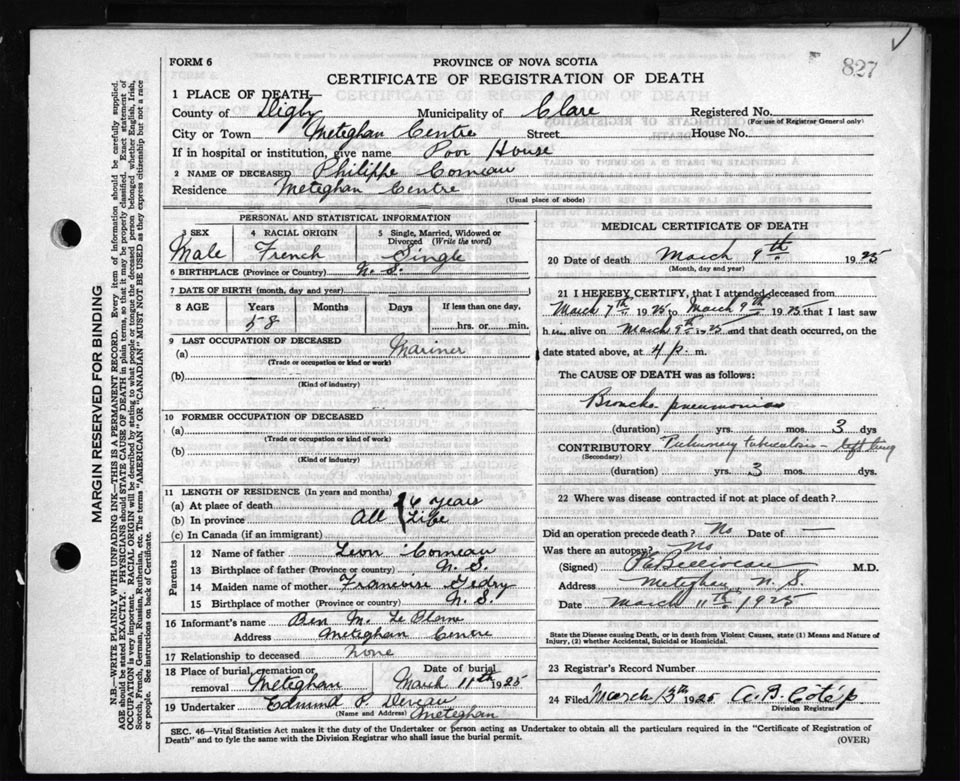 827
FORM 6
PROVINCE OF NOVA SCOTIA
CERTIFICATE OF REGISTRATION OF DEATH
1 PLACE OF DEATH—
County of Digby Municipality of Clare Registered No.
(For use of Registrar General only)
City or Town Meteghan Centre Street House No.
If in hospital or institution, give name Poor House
2 NAME OF DECEASED Philippe Comeau
Residence Meteghan Centre
(Usual place of abode)
PERSONAL AND STATISTICAL INFORMATION
3 SEX 4 RACIAL ORIGIN 5 Single, Married, Widowed or Divorced (Write the word)
Male French Single
6 BIRTHPLACE (Province or Country) N. S.
7 DATE OF BIRTH (month, day and year)
8 AGE Years Months Days If less than one day,
58 hrs. or min.
9 LAST OCCUPATION OF DECEASED
(a) Mariner
(Trade or occupation or kind of work)
(b)
(Kind of industry)
10 FORMER OCCUPATION OF DECEASED
(a)
(Trade or occupation or kind of work)
(b)
(Kind of industry)
11 LENGTH OF RESIDENCE (In years and months)
(a) At place of death 6 years
(b) In province All Life
(c) In Canada (if an immigrant)
Parents
12 Name of father Leon Comeau
13 Birthplace of father (Province or country) N. S.
14 Maiden name of mother Francoise Gedry
15 Birthplace of mother (Province or country) N. S.
16 Informant's name Ben M. Le Blanc
Address Meteghan Centre
17 Relationship to deceased None
18 Place of burial, cremation or removal Meteghan Date of burial March 11th 1925
19 Undertaker Edmund P. Deveau
(Name and Address) Meteghan
MEDICAL CERTIFICATE OF DEATH
20 Date of death March 9th 1925
(Month, day and year)
21 I HEREBY CERTIFY, that I attended deceased from
March 7th 1925 to March 9th 1925 that I last saw
him alive on March 9th 1925 and that death occurred, on the
date stated above, at 4 p. m.
The CAUSE OF DEATH was as follows:
Broncho pneumonia
(duration) yrs. mos. 3 dys
CONTRIBUTORY Pulmonary tuberculosis - left lung
(Secondary)
(duration) yrs. 3 mos. dys.
22 Where was disease contracted if not at place of death?
Did an operation precede death? No Date of —
Was there an autopsy? No
(Signed) Belliveau M.D.
Address Meteghan N. S.
Date March 11th 1925
State the Disease causing Death, or in death from Violent Causes, state (1) Means and Nature of
Injury, (2) whether Accidental, Suicidal or Homicidal.
23 Registrar's Record Number
24 Filed March 13th 1925
Division Registrar
SEC. 46—Vital Statistics Act makes it the duty of the Undertaker or person acting as Undertaker to obtain all the particulars required in the "Certificate of Registration of
Death" and to fyle the same with the Division Registrar who shall issue the burial permit.
(OVER)
MARGIN RESERVED FOR BINDING
N.B.—WRITE PLAINLY WITH UNFADING INK—THIS IS A PERMANENT RECORD. Every item of information should be carefully supplied.
AGE should be stated EXACTLY. PHYSICIANS should STATE CAUSE OF DEATH in plain terms, so that it may be properly classified. Exact statement of
OCCUPATION is very important. RACIAL ORIGIN will be described by stating to what people or tongue the deceased person belonged whether English, Irish,
Scotch, French, German, Russian, Ruthenian, etc. The terms "AMERICAN" OR "CANADIAN" MUST NOT BE USED as they express citizenship but not a race
or people. See instructions on back of Certificate.